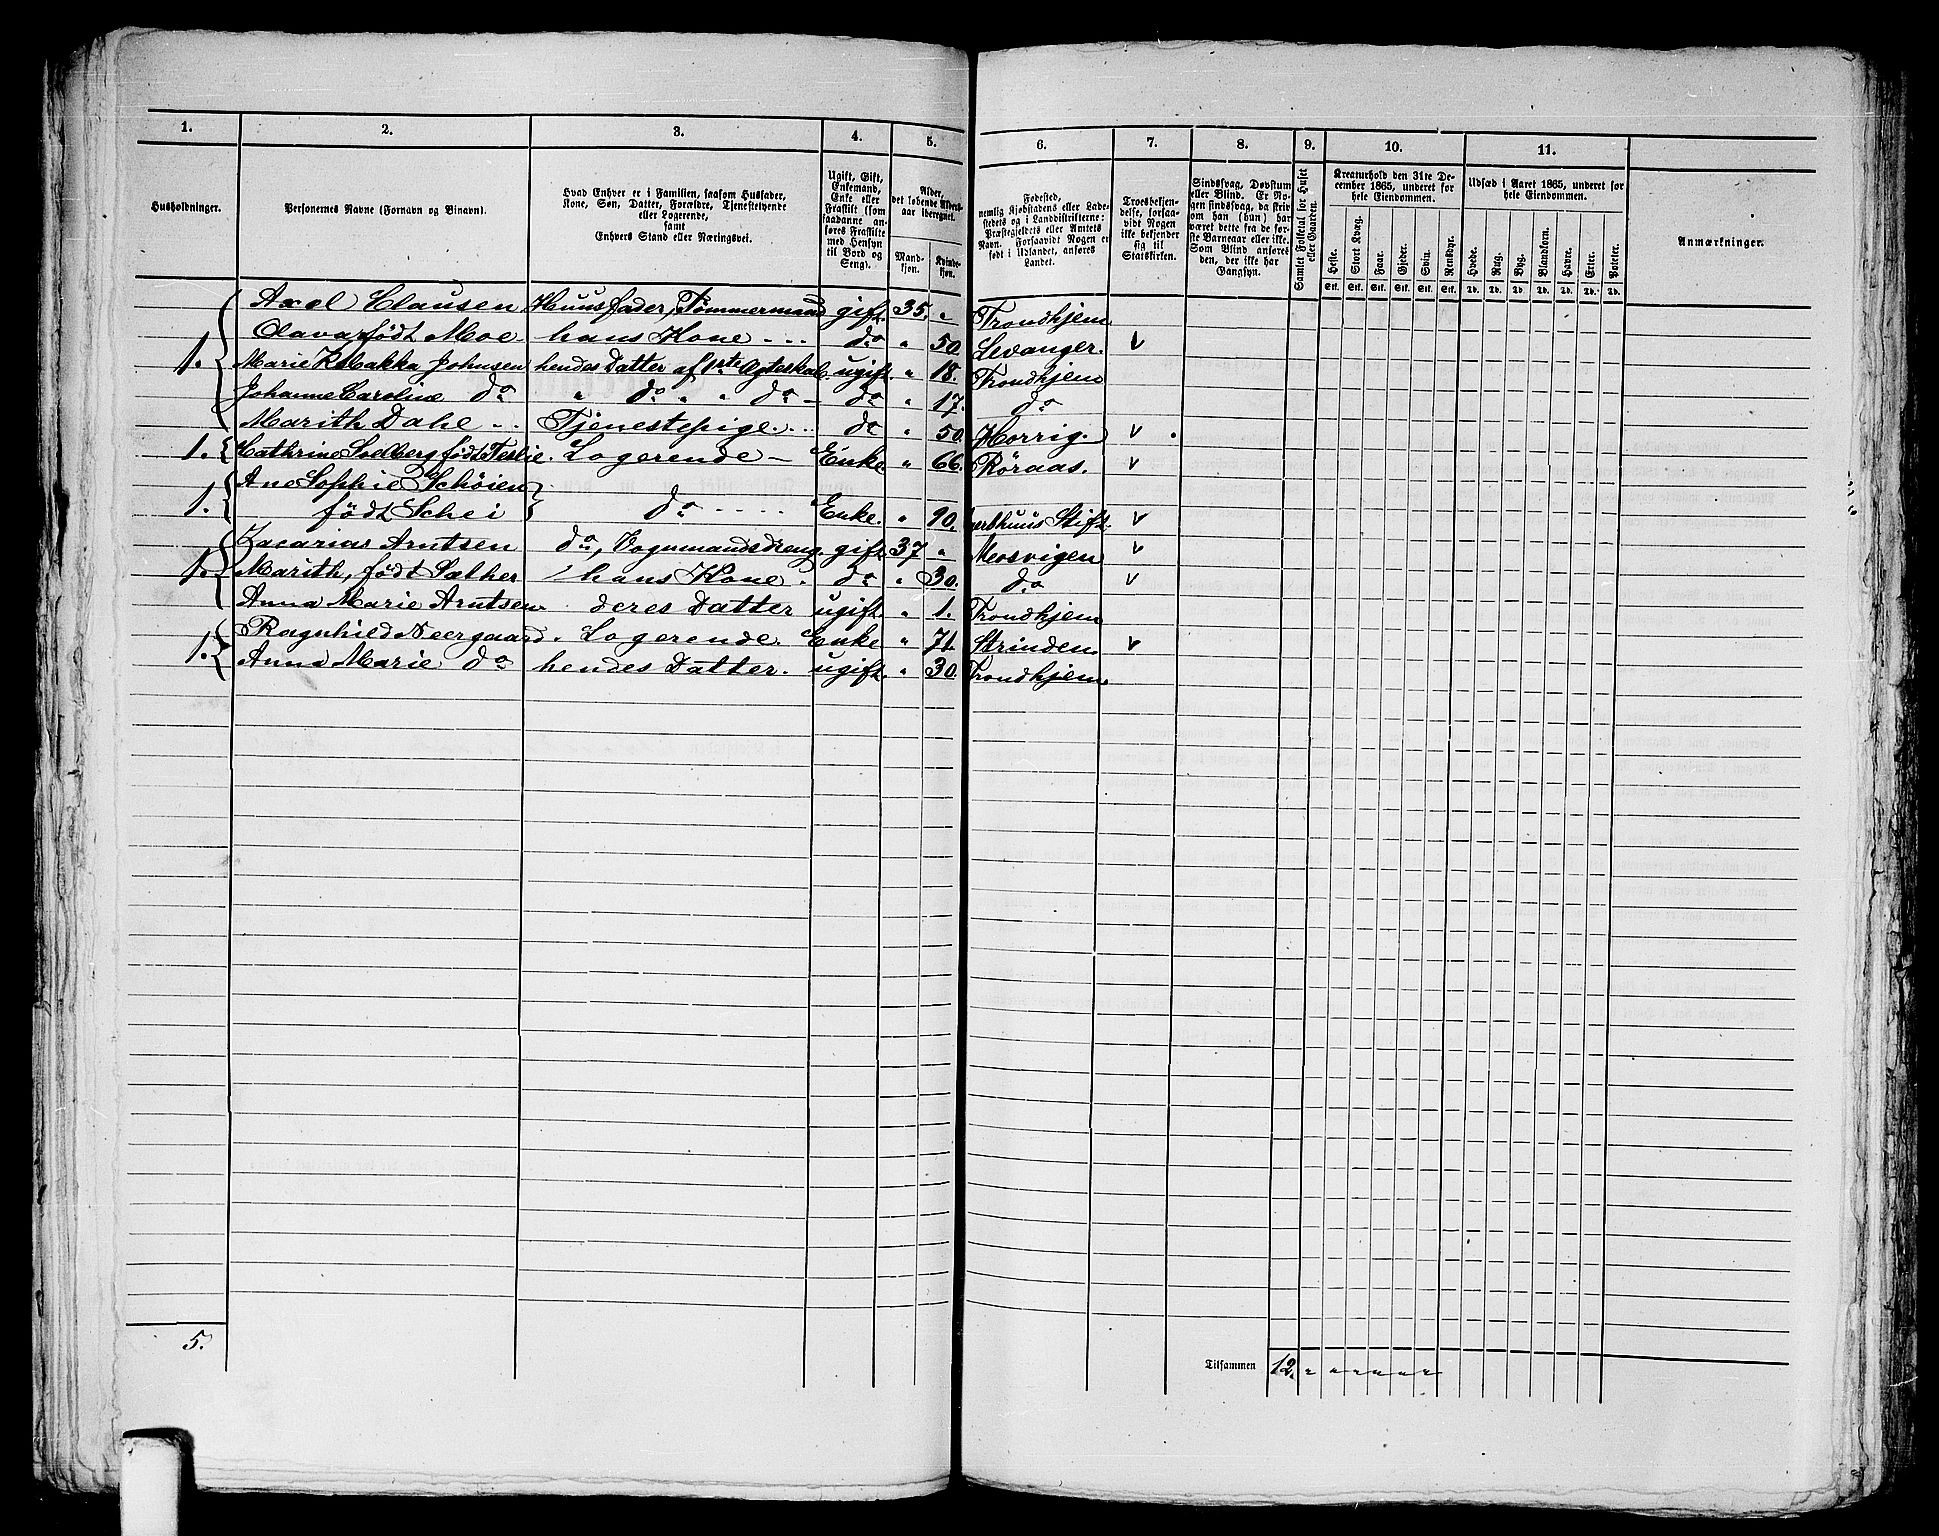 1. 2. 3. 4. 5. 6. 7. 8. 9. 10. 11.
Husholdninger.
Personernes Navne (Fornavn og Binavn).
Hvad Enhver er i Familien, saasom Husfader,
Kone, Søn, Datter, Forældre, Tjenestetyende
eller Logerende,
samt
Enhvers Stand eller Næringsvei.
Ugift, Gift,
Enkemand,
Enke eller
Fraskilt (som
saadanne an-
føres Fraskilte
med Hensyn
til Bord og
Seng).
Alder,
det løbende Alders-
aar iberegnet.
Mand-
kjøn.
Kvinde-
kjøn.
Fødested,
nemlig Kjøbstadens eller Lade-
stedets og i Landdistrikterne:
Præstegjeldets eller Amtets
Navn. Forsaavidt Nogen er
født i Udlandet, anføres
Landet.
Troesbekjen-
delse, forsaa-
vidt Nogen
ikke bekjender
sig til
Statskirken.
Sindssvag, Døvstum
eller Blind. Er No-
gen sindssvag, da skriv
om han (hun) har
været dette fra de før-
ste Barneaar eller ikke.
Som Blind anføres
den, der ikke har
Gangsyn.
Samlet Folketal for Huset
eller Gaarden.
Kreaturhold den 31te De-
cember 1865, underet for
hele Eiendommen.
Heste. Stort Kvæg. Faar. Gjeder. Svin. Rensdyr.
Stk. Stk. Stk. Stk. Stk. Stk.
Udsæd i Aaret 1865, underet for
hele Eiendommen.
Hvede. Rug. Byg. Blandkorn. Havre. Erter. Poteter.
Td. Td. Td. Td. Td. Td. Td.
Anmærkninger.
Axel Clausen Huusfader, Tømmermand gift. 35. " Trondhjem
Olava født Moe hans Kone ... do " 50. Levanger. v
1. Marie Johnsen hendes Datter af 1ste Ægteskab. ugift. " 18. Trondhjem
Johanne Caroline do " do " " do - do " 17. do
Marith Dahl .. Tjenestepige. ... do " 50. v
1. Cathrine Soelberg født Logerende - Enke " 66. Røraas. v
Ane Sophie Schøien
1. født Schei do ..... Enke. " 90. Stift. v
Zacarias Arntsen do, Vognmandsdreng. gift 37 " Mosvigen v
1. Marith, født Sæther hans Kone. do " 30. do v
Anna Marie Arntsen deres Datter ugift. " 1. Trondhjem
Ragnhild Neergaard. Logerende. Enke " 71. Strinden. v
1. Anna Marie do hendes Datter. ugift. " 30. Trondhjem.
5.
Tilsammen 12. " " " " " "